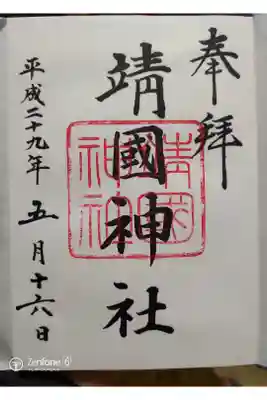 奉拝
靖國神社
平成二十九年五月十六日
靖国
神社
Zenfone 6